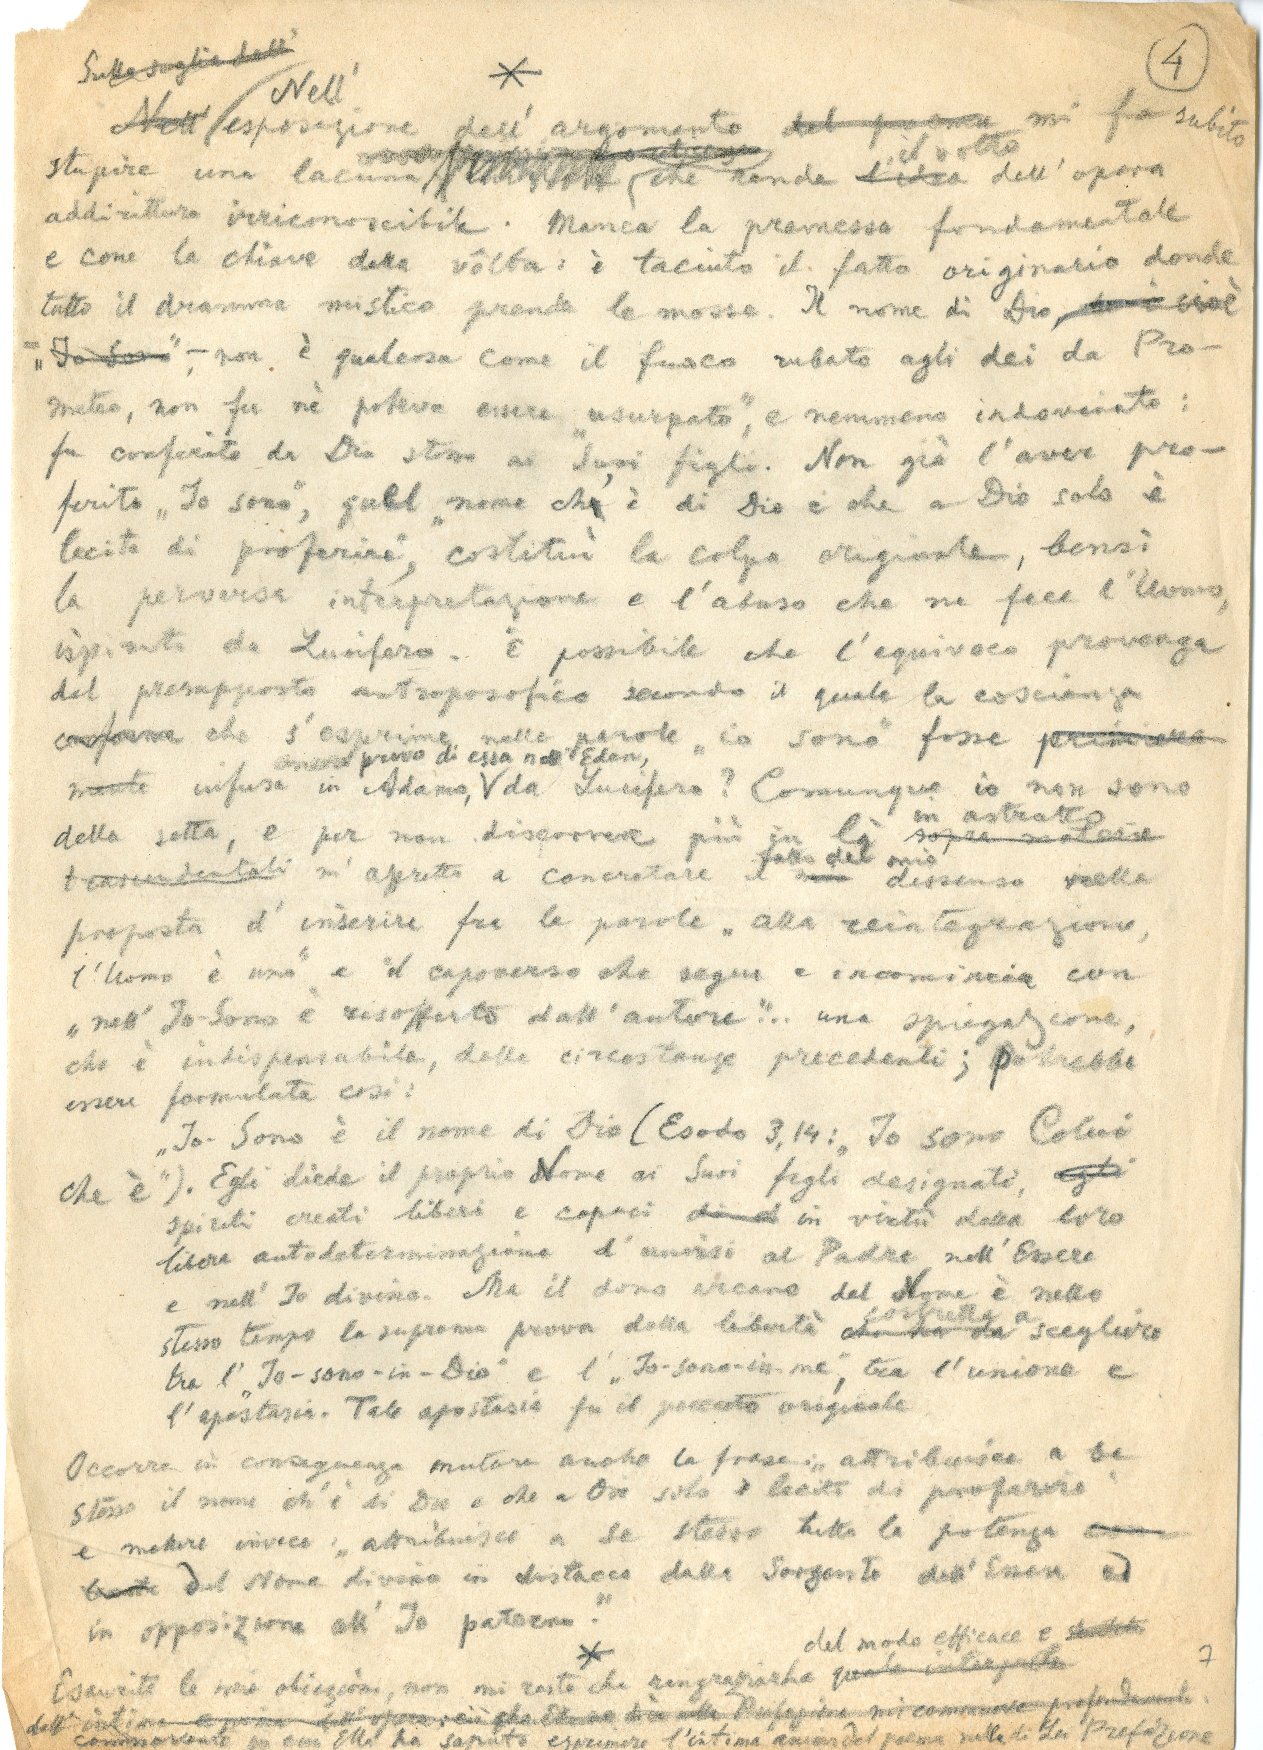 4
Sulla soglia dell'
Nell'
*
Nell' esposizione dell'argomento del poema mi fa subito
il volto
stupire una lacuna che rende l'idea dell'opera
addirittura irriconoscibile. Manca la premessa fondamentale
e come la chiave della vôlta: è taciuto il fatto originario donde
tutto il dramma mistico prende le mosse. Il nome di Dio, cioè
„Io Sono", – non è qualcosa come il fuoco rubato agli dei da Pro-
meteo, non fu nè poteva essere „usurpato", e nemmeno indovinato:
fu conferito da Dio stesso ai Suoi figli. Non già l'aver pro-
ferito „Io sono", quel „nome ch'è di Dio e che a Dio solo è
lecito di proferire", costituì la colpa originale, bensì
la perversa interpretazione e l'abuso che ne fece l'Uomo,
ispirato da Lucifero. È possibile che l'equivoco provenga
dal presupposto antroposofico secondo il quale la coscienza
conforme che s'esprime nelle parole „io sono" fosse primiera
ancora privo di essa nell'Eden,
mente infusa in Adamo, da Lucifero? Comunque io non sono
in astratto
della setta, e per non discorrere più in là sopra materie
fatto del mio
trascendentali m'affretto a concretare il mio dissenso nella
proposta d'inserire fra le parole „alla reintegrazione,
l'Uomo è uno" e il capoverso che segue e incomincia con
„nell'Io-Sono è risofferto dall'autore".. una spiegazione,
che è indispensabile, delle circostanze precedenti; potrebbe
essere formulata così:
„Io-Sono è il nome di Dio (Esodo 3,14: „Io sono Colui
che è"). Egli diede il proprio Nome ai Suoi figli designati, agli
spiriti creati liberi e capaci di d in virtù della loro
libera autodeterminazione d'unirsi al Padre nell'Essere
e nell'Io divino. Ma il dono arcano del Nome è nello
costretta a
stesso tempo la suprema prova della libertà che ha da scegliere
tra l'„Io-sono-in-Dio" e l'„Io-sono-in-me", tra l'unione e
l'apostasia. Tale apostasia fu il peccato originale
Occorre in conseguenza mutare anche la frase: „attribuisce a se
stesso il nome ch'è di Dio e che a Dio solo è lecito di proferire"
e mettere invece: „attribuisce a se stesso tutta la potenza
del Nome divino in distacco dalla Sorgente dell'Essere ed
in opposizione all'Io paterno."
*
del modo efficace e
7
Esaurite le mie obiezioni, non mi resta che ringraziarla quale interprete
dell'intima anima dell'opera, ciò che Ella ne dà nella Prefazione mi commuove profondamente.
commovente in cui Ella ha saputo esprimere l'intima anima del poema nella di Lei Prefazione